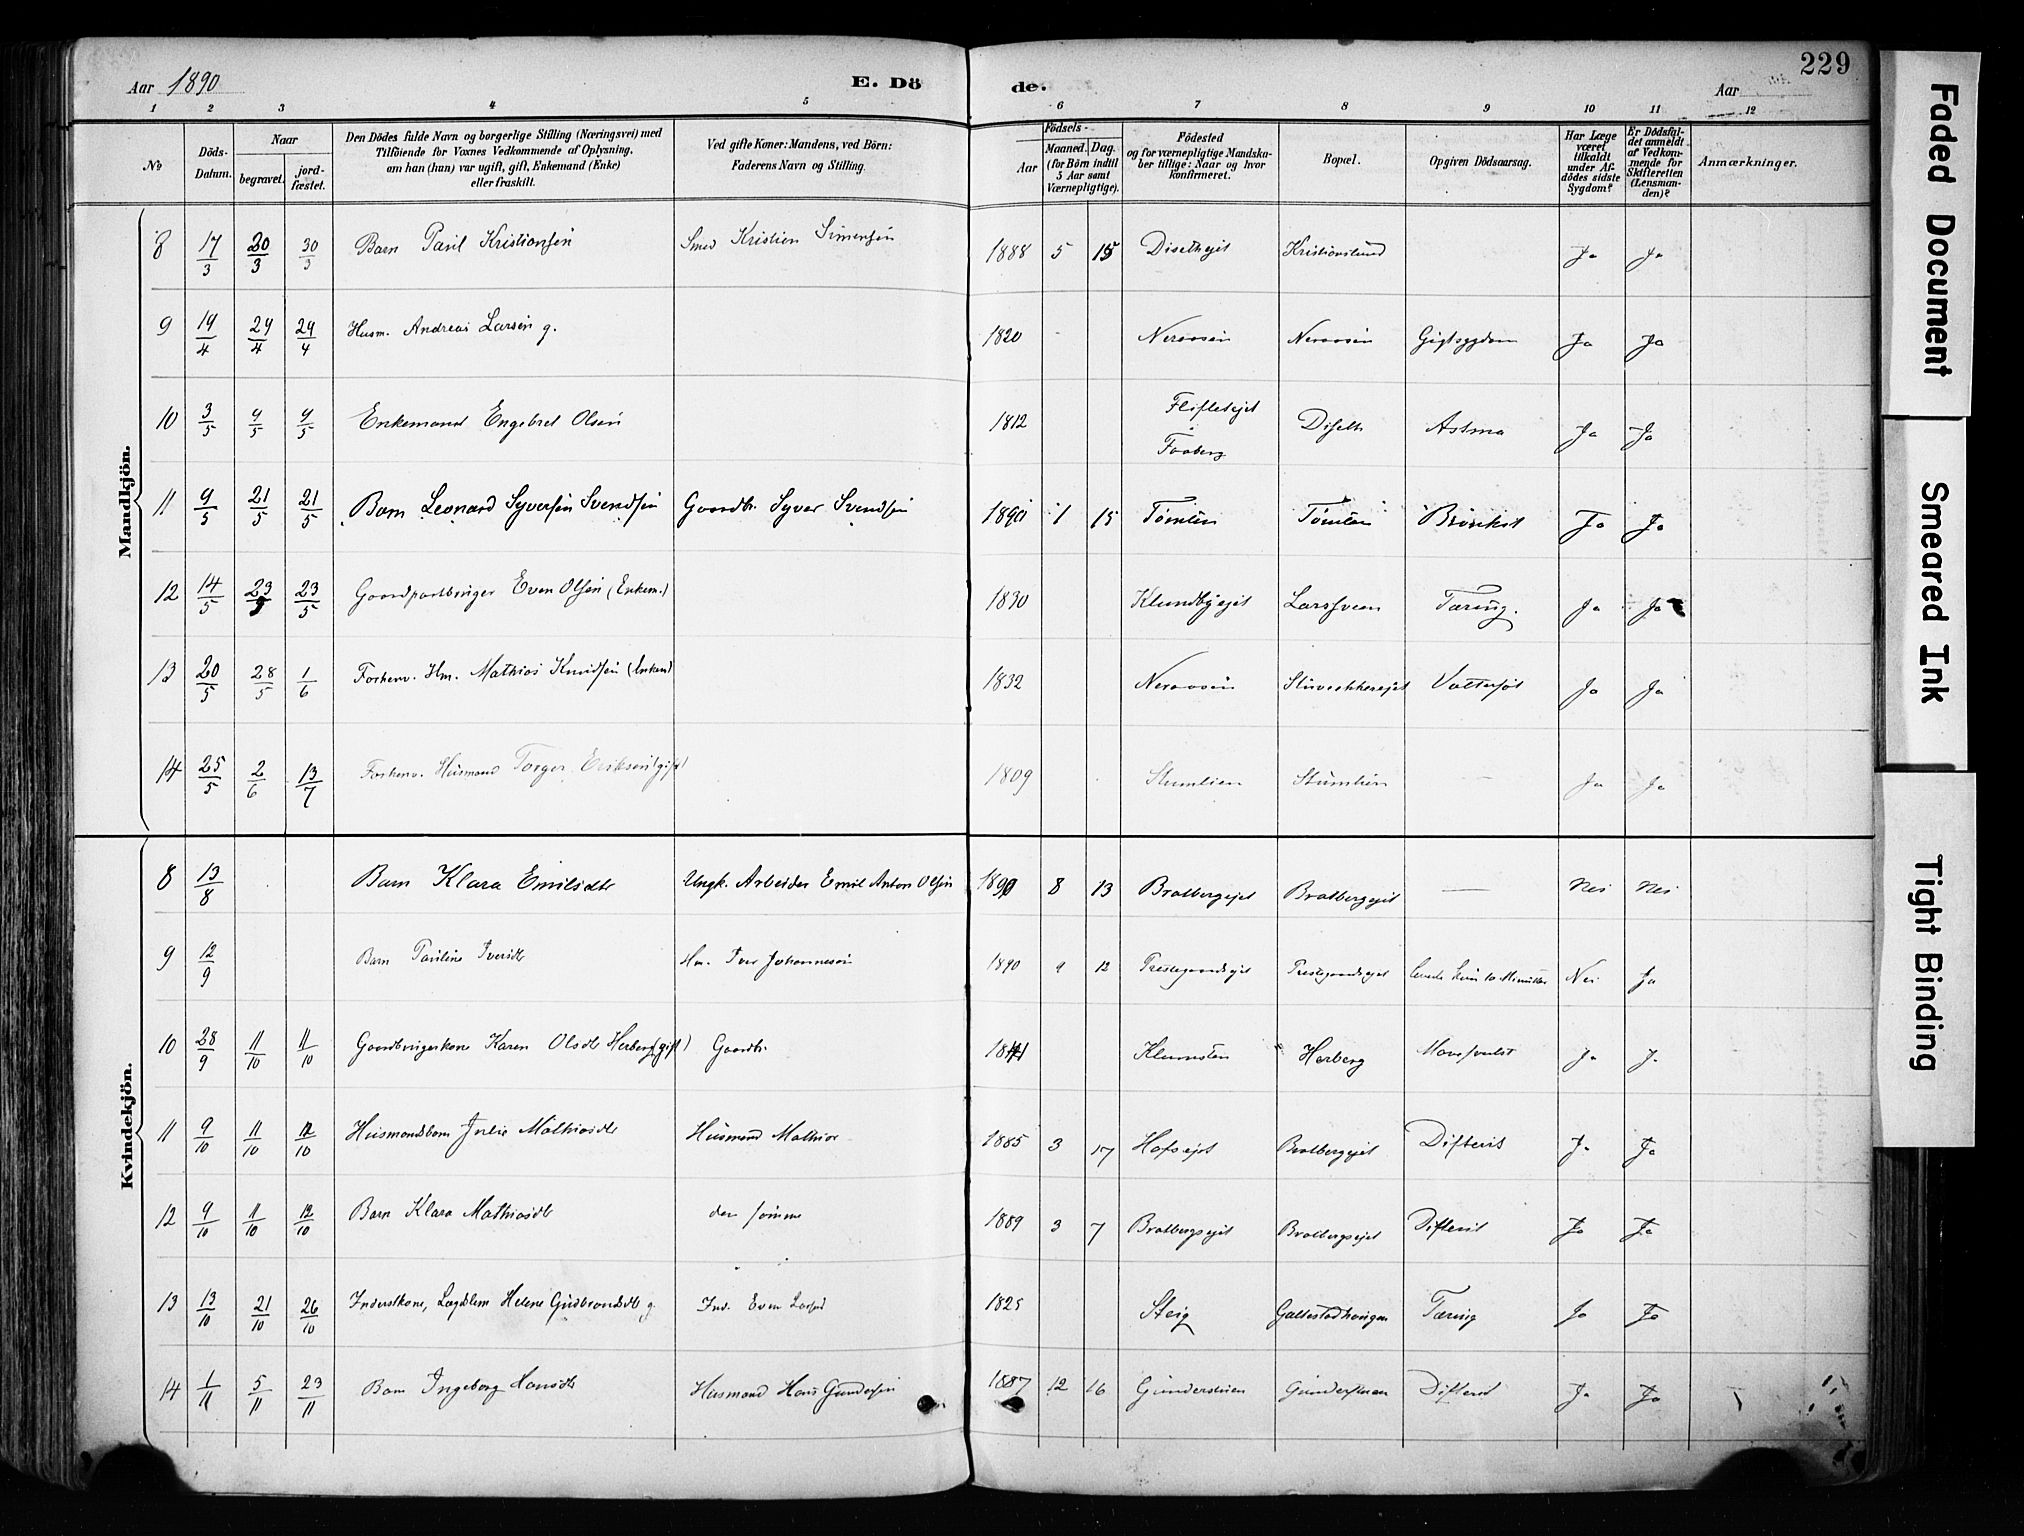 229
Aar 1890 E. Dö de. Aar
1 2 3 4 5 6 7 8 9 10 11 12
№ Döds-Datum. Naar begravet. jordfæstet. Den Dödes fulde Navn og borgerlige Stilling (Næringsvei) med Tilföiende for Voxnes Vedkommende af Oplysning, om han (hun) var ugift, gift, Enkemand (Enke) eller fraskilt. Ved gifte Koner: Mandens, ved Börn: Faderens Navn og Stilling. Födsels- Aar Maaned. Dag. (for Börn indtil 5 Aar samt Værnepligtige). Födested og for værnepligtige Mandskaber tillige: Naar og hvor konfirmeret. Bopæl. Opgiven Dödsaarsag. Har Læge været tilkaldt under Afdödes sidste Sygdom? Er Dödsfaldet anmeldt af Vedkommende for Skifteretten (Lensmanden)? Anmærkninger.
Mandkjön.
8 17/3 30/3 30/3 Barn Paul Kristiansen Smed Kristian Simensen 1888 5 15 Disethejet Kristianslund Ja Ja
9 19/4 29/4 29/4 Husm. Andreas Larsen g. 1820 Neraasen Neraasen Gigtsygdom Ja Ja
10 3/5 9/5 9/5 Enkemand Engebret Olsen 1812 Faaberg Diseth Astma Ja Ja
11 9/5 21/5 21/5 Barn Leonard Syversen Svendsen Gaardbr. Syver Svendsen 1890 1 15 Tømten Tømten Ja Ja
12 14/5 23/5 23/5 Gaardpartbruger Even Olsen (Enkem.) 1830 Klundbyejet Larssveen Tæring. Ja Ja
13 20/5 28/5 1/6 Forhenv. Hm. Mathias Knudsen (Enkem) 1832 Neraasen Vattersot Ja Ja
14 25/5 2/6 13/7 Forhenv. Husmand Torger Eriksen (gift) 1809 Stumlien Stumlien Ja Ja
Kvindekjön.
8 13/8 Barn Klara Emilsdtr Ungk. Arbeider Emil Anton Olsen 1890 8 13 Bratbergejet Bratbergejet Nei Nei
9 12/9 Barn Pauline Iversdtr Hm. Iver Johannesen 1890 9 12 Prestegaardsejet Prestegaardsejet levede kun 10 Minutter Nei Ja
10 28/9 11/10 11/10 Gaardbrugerkone Karen Olsdtr Herberg (gift) Gaardbr. 1841 Klumsten Herberg Ja Ja
11 9/10 11/10 12/10 Husmandsbarn Julie Mathiasdtr Husmand Mathias 1885 3 17 Hofsejet Bratbergejet Difterit Ja Ja
12 9/10 11/10 12/10 Barn Klara Mathiasdtr den samme 1889 3 7 Bratbergsejet Bratbergsejet Difterit Ja Ja
13 13/10 21/10 26/10 Inderstkone, Lægdslem Helene Gudbrandsdtr g. Ind. Even Larsen 1825 Steig Galtestadhaugen Tæring Ja Ja
14 1/11 5/11 23/11 Barn Ingeborg Hansdtr Husmand Hans Gundersen 1887 12 16 Gunderstuen Gunderstuen Difterit Ja Ja
Faded Document
Smeared Ink
Tight Binding